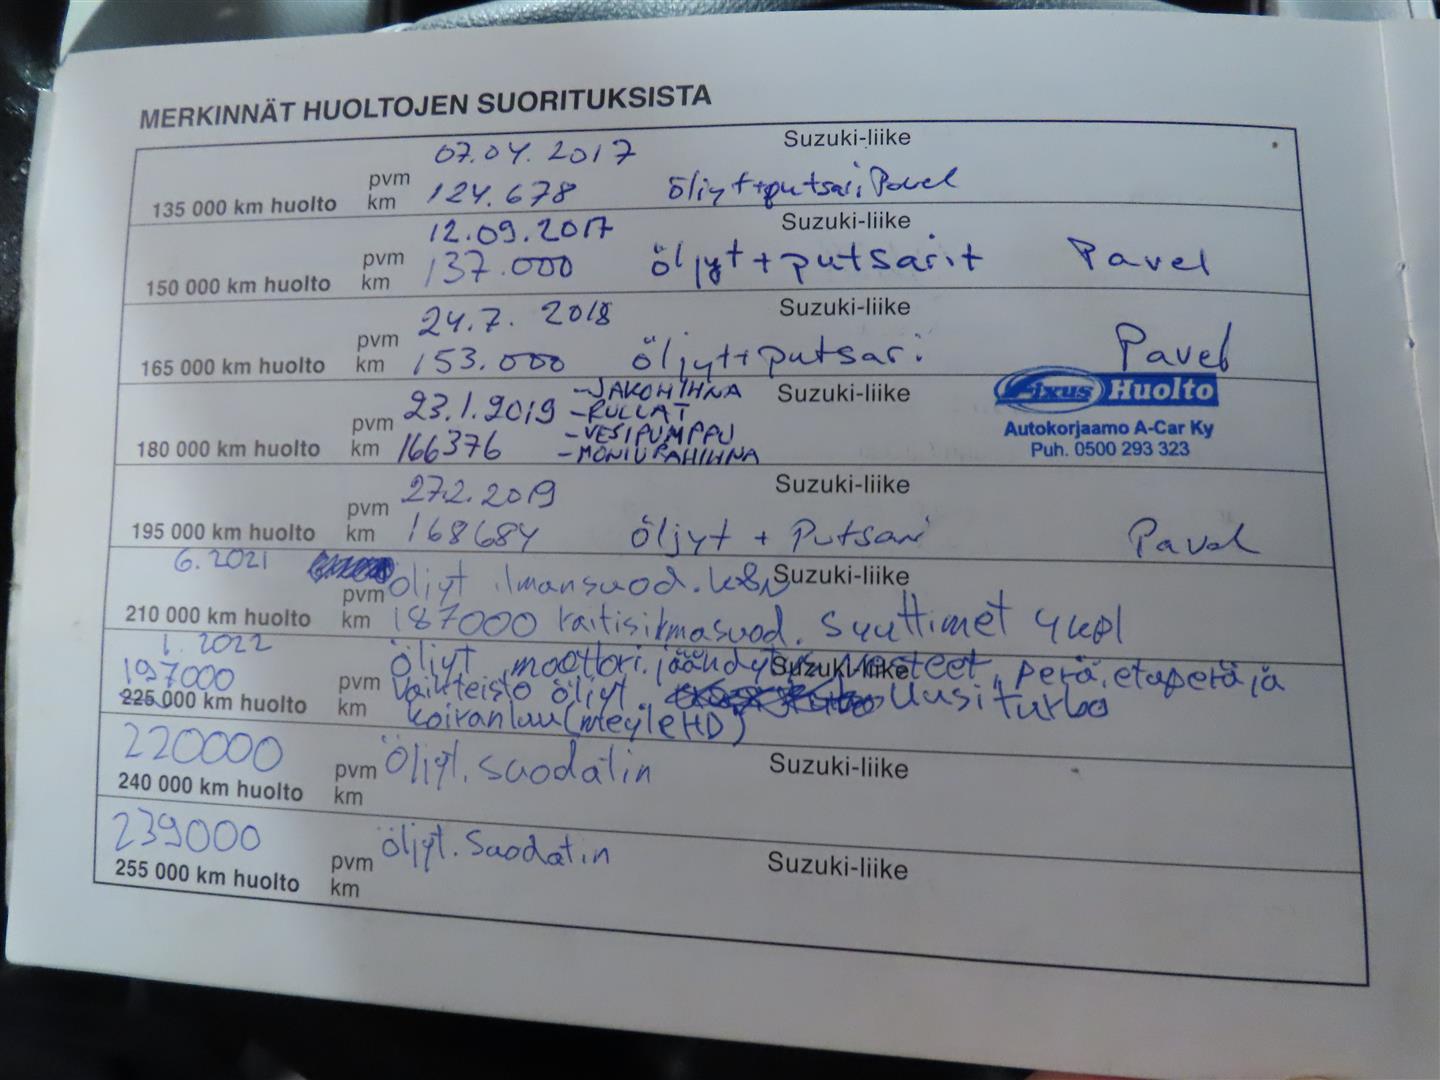 MERKINNÄT HUOLTOJEN SUORITUKSISTA
07.04.2017 Suzuki-liike
pvm
135 000 km huolto km 124.678 öljyt+putsari Pavel
12.09.2017 Suzuki-liike
pvm
150 000 km huolto km 137.000 öljyt+putsarit Pavel
24.7. 2018 Suzuki-liike
pvm
165 000 km huolto km 153.000 öljyt+putsari Pavel
-JAKOHIHNA Suzuki-liike
pvm 23.1.2019 -RULLAT
-VESIPUMPPU
180 000 km huolto km 166376 -MONIURAHIHNA
Fixus Huolto
Autokorjaamo A-Car Ky
Puh. 0500 293 323
27.2.2019 Suzuki-liike
pvm
195 000 km huolto km 168684 öljyt + Putsari Pavel
6.2021 Suzuki-liike
pvm öljyt ilmansuod.
210 000 km huolto km 187000 raitisilmasuod. Suuttimet 4kpl
1.2022 Suzuki-liike
197000 öljyt, moottori. jäähdytys nesteet, perä, etuperä ja
pvm vaihteisto öljyt. Uusi turbo
225 000 km huolto km koiranluu (meyle HD)
220000 Suzuki-liike
pvm öljyt. suodatin
240 000 km huolto km
239000 Suzuki-liike
pvm öljyt. Suodatin
255 000 km huolto km